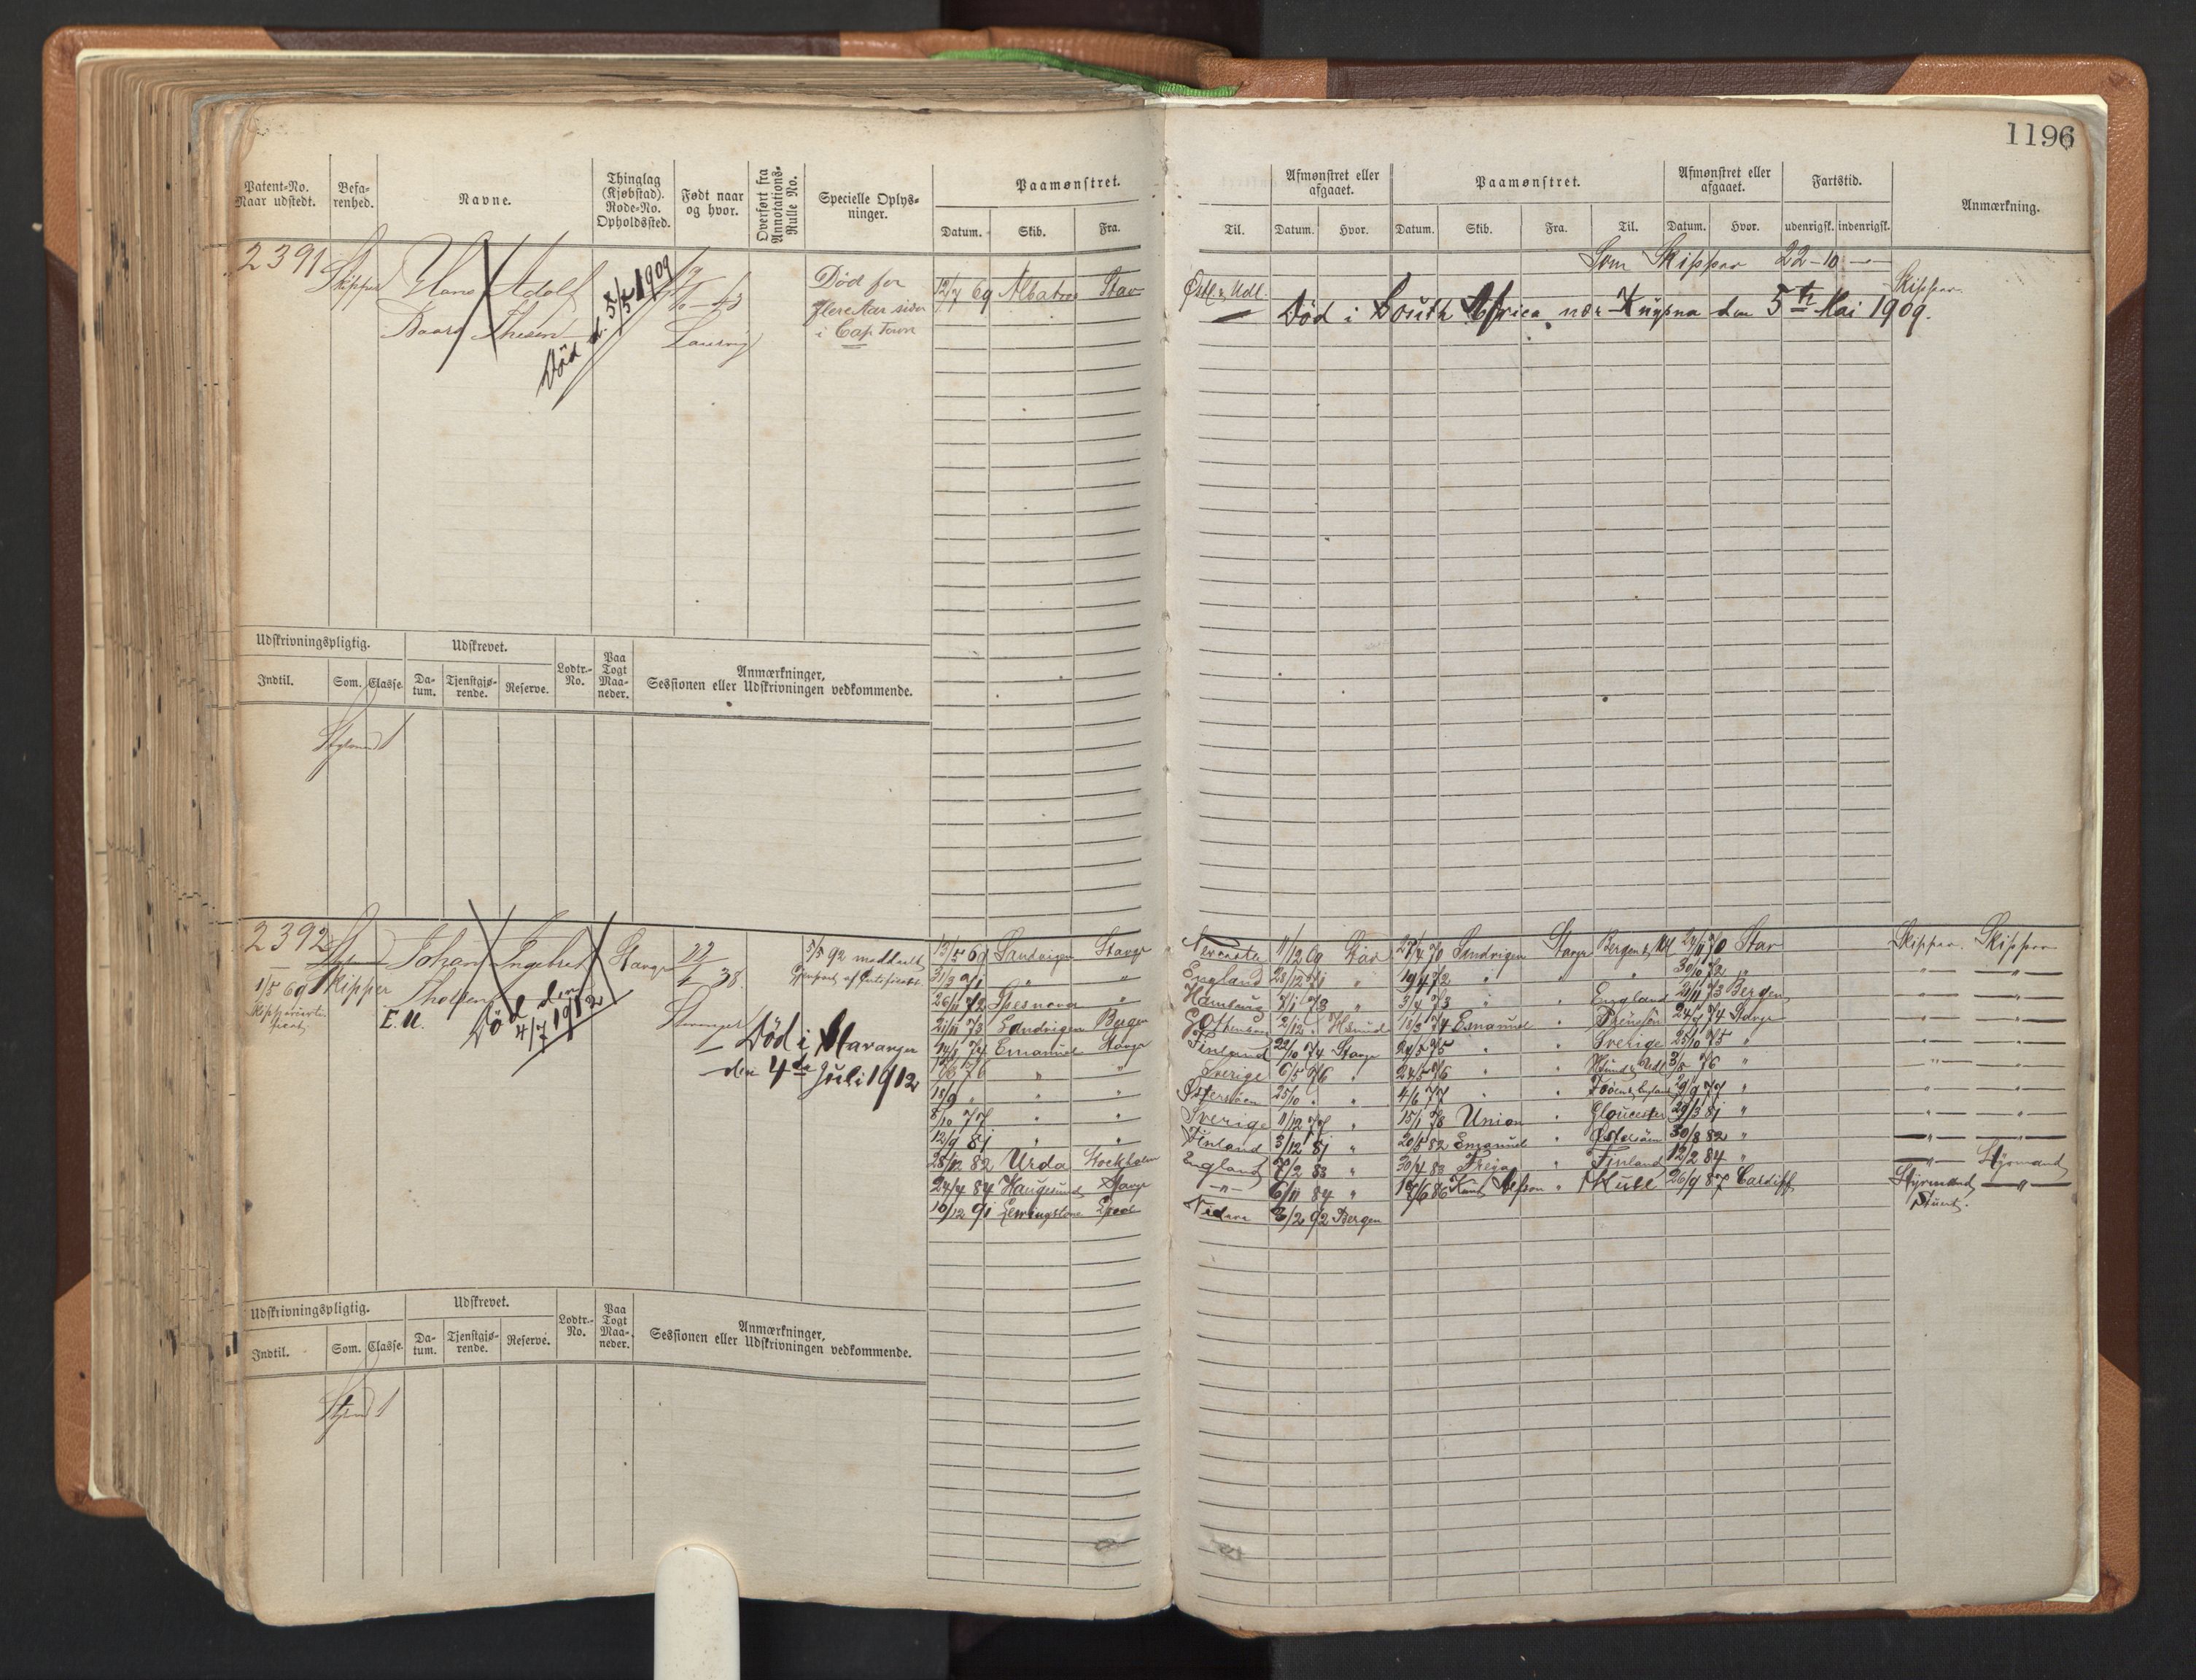 1196
Patent-No.
Naar udstedt.
Befa-
renhed.
Navne.
Thinglag
(Kjøbstad).
Rode-No.
Opholdssted.
Født naar
og hvor.
Overført fra
Annotations-
Rulle No.
Specielle Oplys-
ninger.
Paamønstret.
Datum. Skib. Fra.
Til.
Afmønstret eller
afgaaet.
Datum. Hvor.
Paamønstret.
Datum. Skib. Fra. Til.
Afmønstret eller
afgaaet.
Datum. Hvor.
Fartstid.
udenrigsk. indenrigsk.
Anmærkning.
2391
Skipper
Hans Adolf
Thesen
Død d. 5/5 1909
Laurvig
Død for
flere Aar siden
i Cap Town
12/7 69 Albatros Stav
Østs. & Udl.
Som Skipper 22-10
Skipper
Død i South Africa nær Knysna den 5te Mai 1909.
Udskrivningspligtig.
Udskrevet.
Indtil. Som. Classe.
Da-
tum.
Tjenstgjø-
rende.
Reserve.
Lodtr.-
No.
Paa
Togt
Maa-
neder.
Anmærkninger,
Sessionen eller Udskrivningen vedkommende.
1
2392
1/5 69
Skipper
Johan Ingebret
E.U.
Død den
4/7 1912
Stavgr
22
38
Stavanger
5/5 92 meddelt
Genpart af Certificat
Død i Stavanger
den 4de Juli 1912
13/5 69 Sandvigen Stavgr
11/12 69 Stav
27/4 70 Sandvigen Stavgr Bergen & Udl 24/11 70 Stav
Skipper. Skipper
31/3 71 " "
England 28/12 71 "
19/4 72 " " " 30/10 72 "
26/11 72 "
Hamburg 7/1 73 "
3/4 73 " " England 21/11 73 Bergen
21/11 73 Sandvigen Bergen
Gothenburg 2/12
18/3 74 Emanuel " 24/9 74 Stavgr
Emanuel Stavgr
Finland 22/10 74 Stavgr
24/5 75 " " Sverige 25/10 75 "
" "
Sverige 6/5 76 "
24/5 76 " " 3/8 76 "
18/9 " " "
Østersøen 25/10 " "
4/6 77 " " 29/9 77 "
8/10 77 " "
Sverige 11/12 77 "
15/1 78 Union " Gloucester 29/3 81 "
12/9 81 " "
Finland 3/12 81 "
20/5 82 Emanuel " Østersøen 30/8 82 "
28/12 82 Urda Stockholm
England 7/2 83 "
30/4 83 Freja " Finland 12/2 84 "
Styrmand
24/4 84 Haugesund Stavgr
" 6/11 84 "
17/6 86 Knud " Hull 26/9 87 Cardiff
Styrmand "
10/12 91
3/2 92 Bergen
Stuert.
Udskrivningspligtig.
Udskrevet.
Indtil. Som. Classe.
Da-
tum.
Tjenstgjø-
rende.
Reserve.
Lodtr.-
No.
Paa
Togt
Maa-
neder.
Anmærkninger,
Sessionen eller Udskrivningen vedkommende.
1